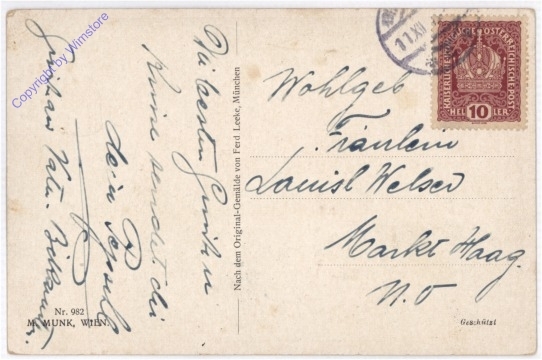 Copyright by Wimstore
11.XII
KAISERLICHE KÖNIGLICHE ÖSTERREICHISCHE POST
HELLER 10 HELLER
Wohlgeb
Fräulein
Louisl Welser
Markt Haag
N.Ö
Die besten Grüße u
Küsse sendet dir
dein Pepperl
Nach dem Original-Gemälde von Ferd Leeke, München
Nr. 982
M. MUNK, WIEN.
Geschützt